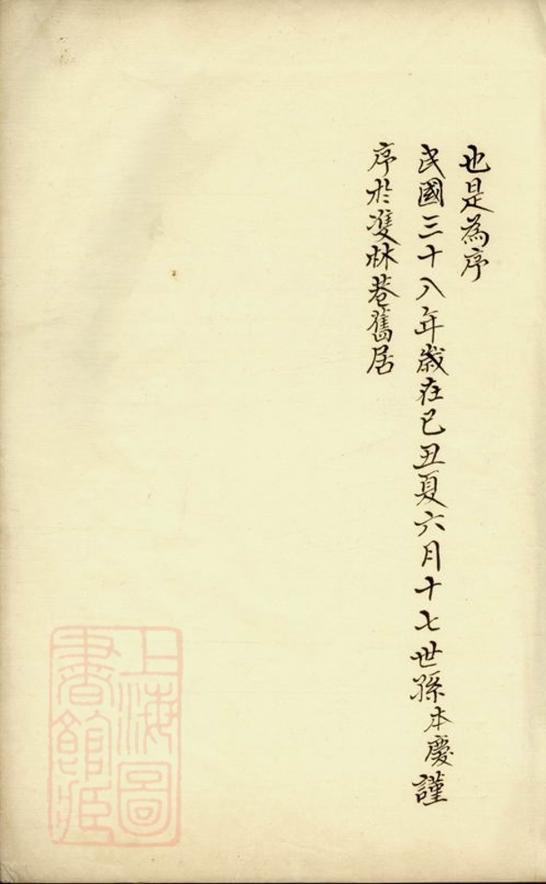 也是為序
民國三十八年歲在己丑夏六月十七世孫本慶謹
序於雙林巷舊居
上海圖
書館藏